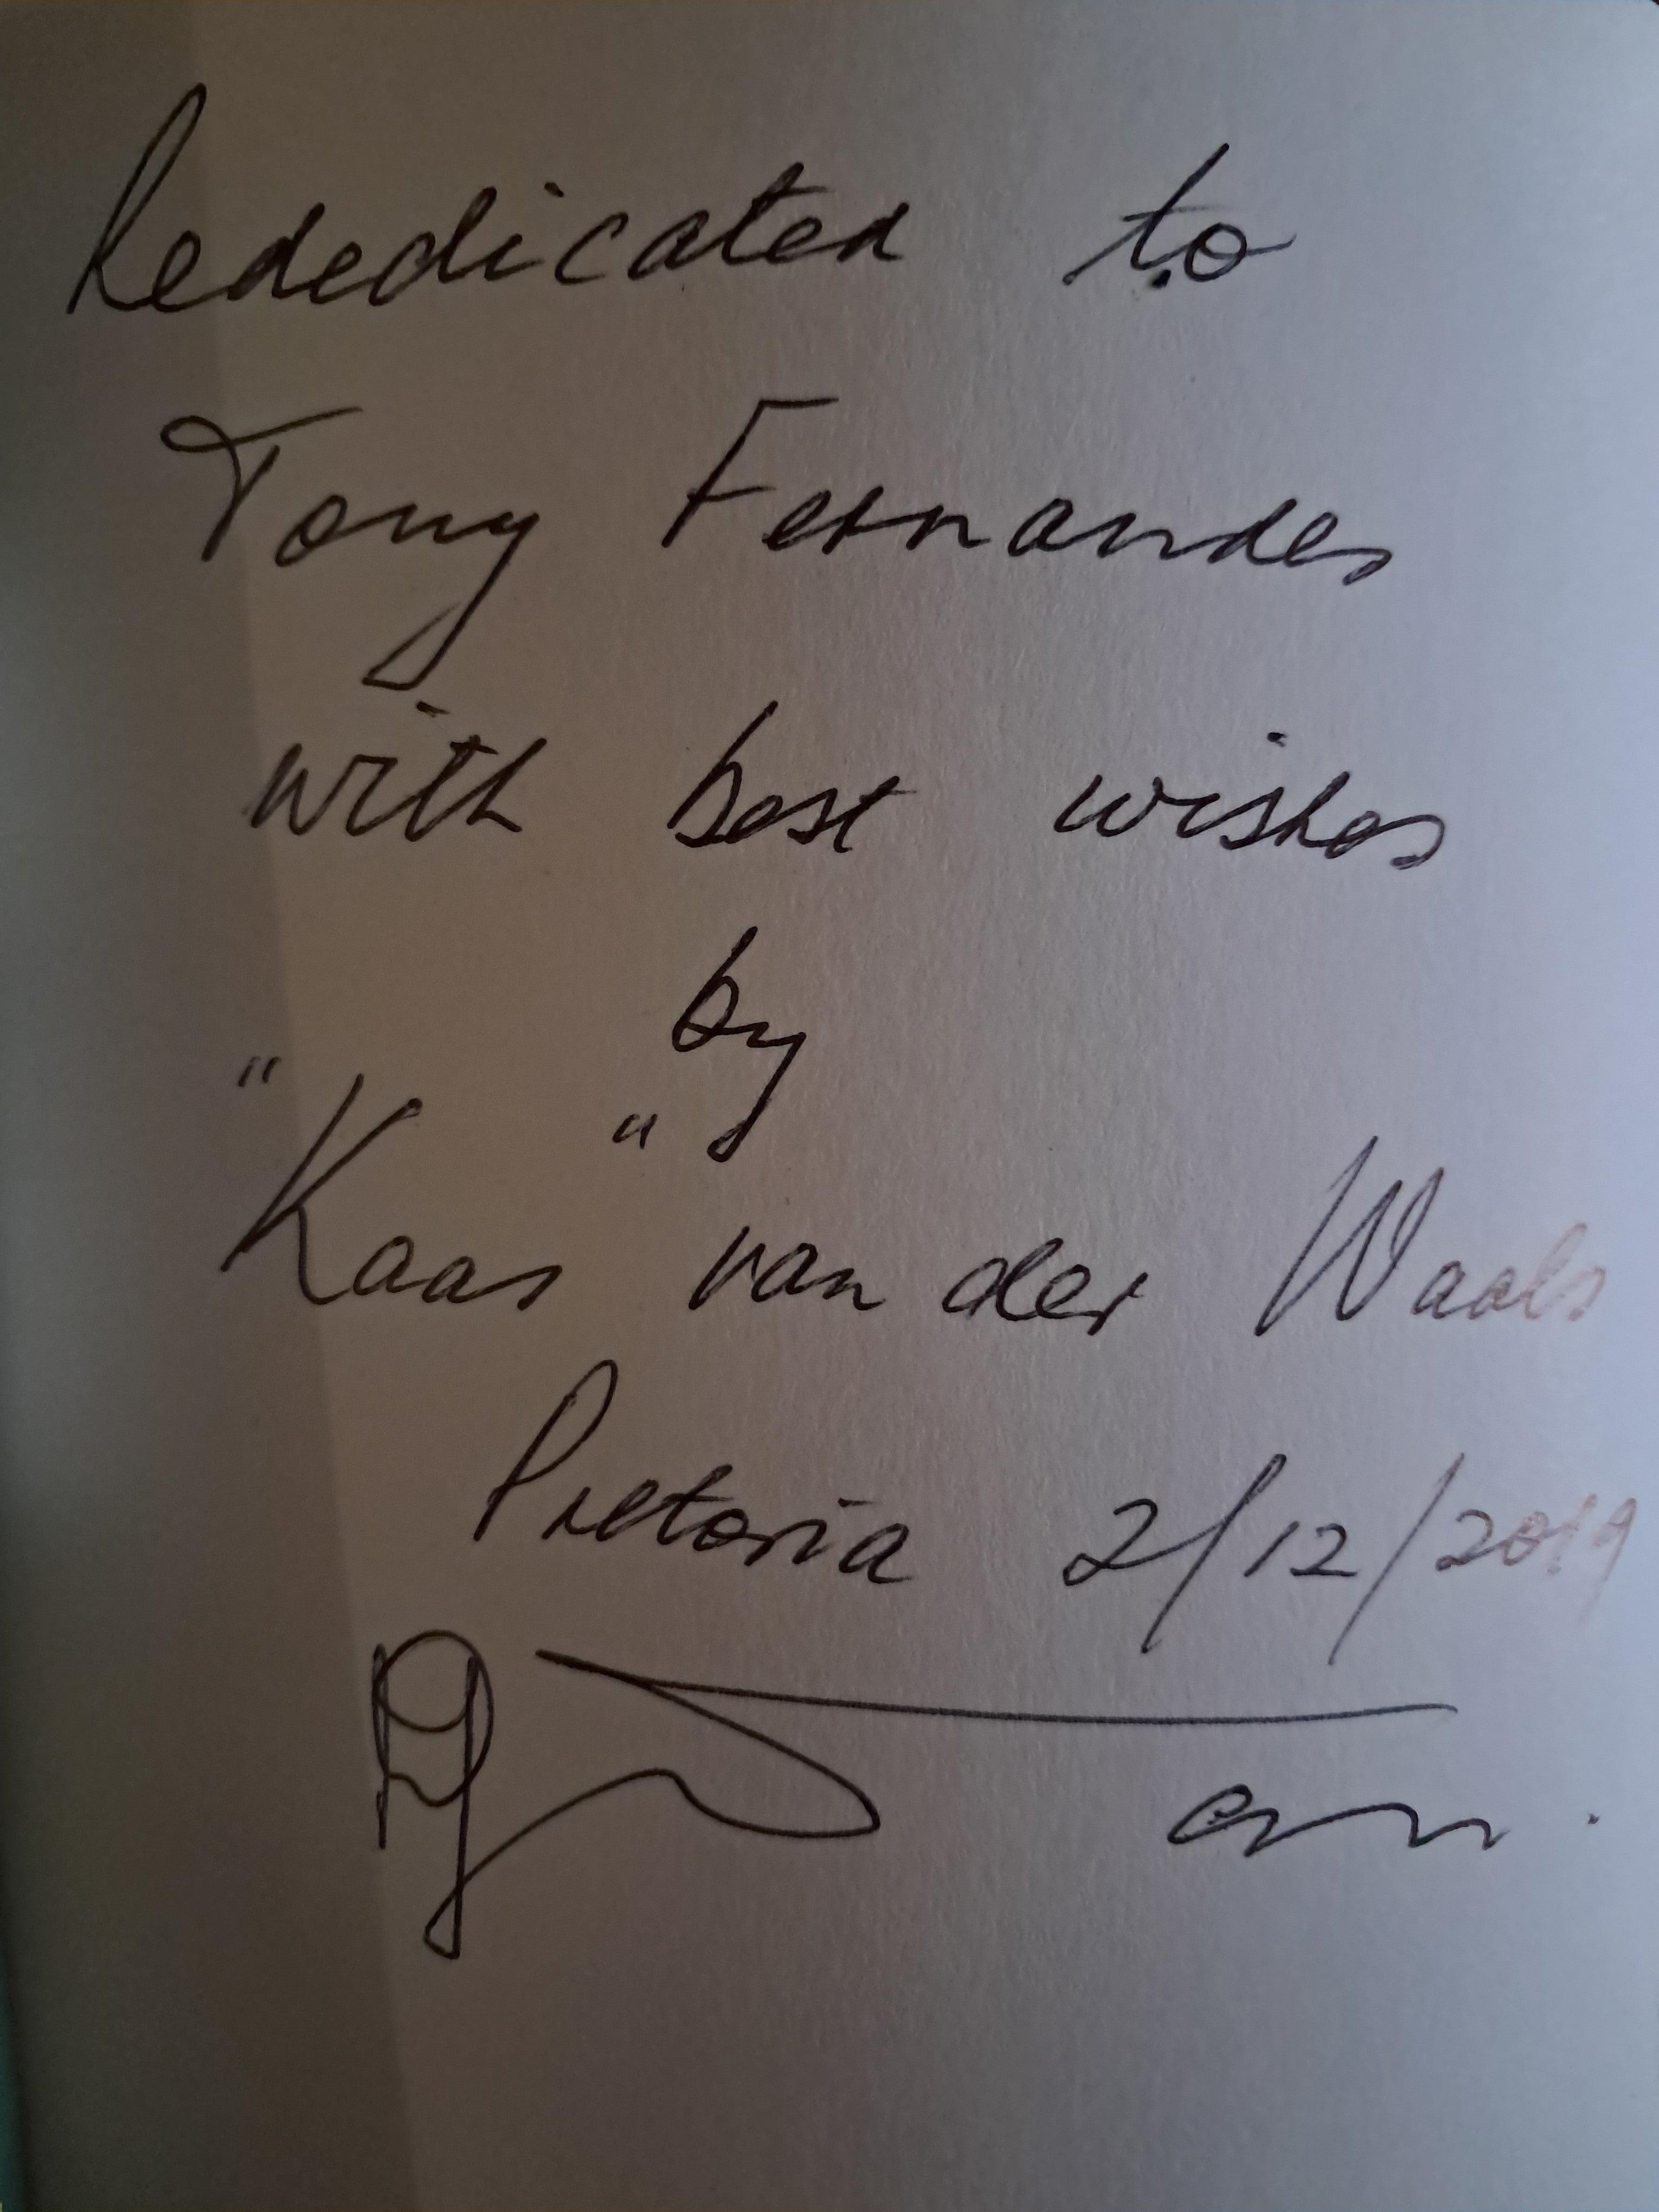 Rededicated to
Tony Fernandes
with best wishes
by
"Kaas" van der Waals
Pretoria 2/12/2019